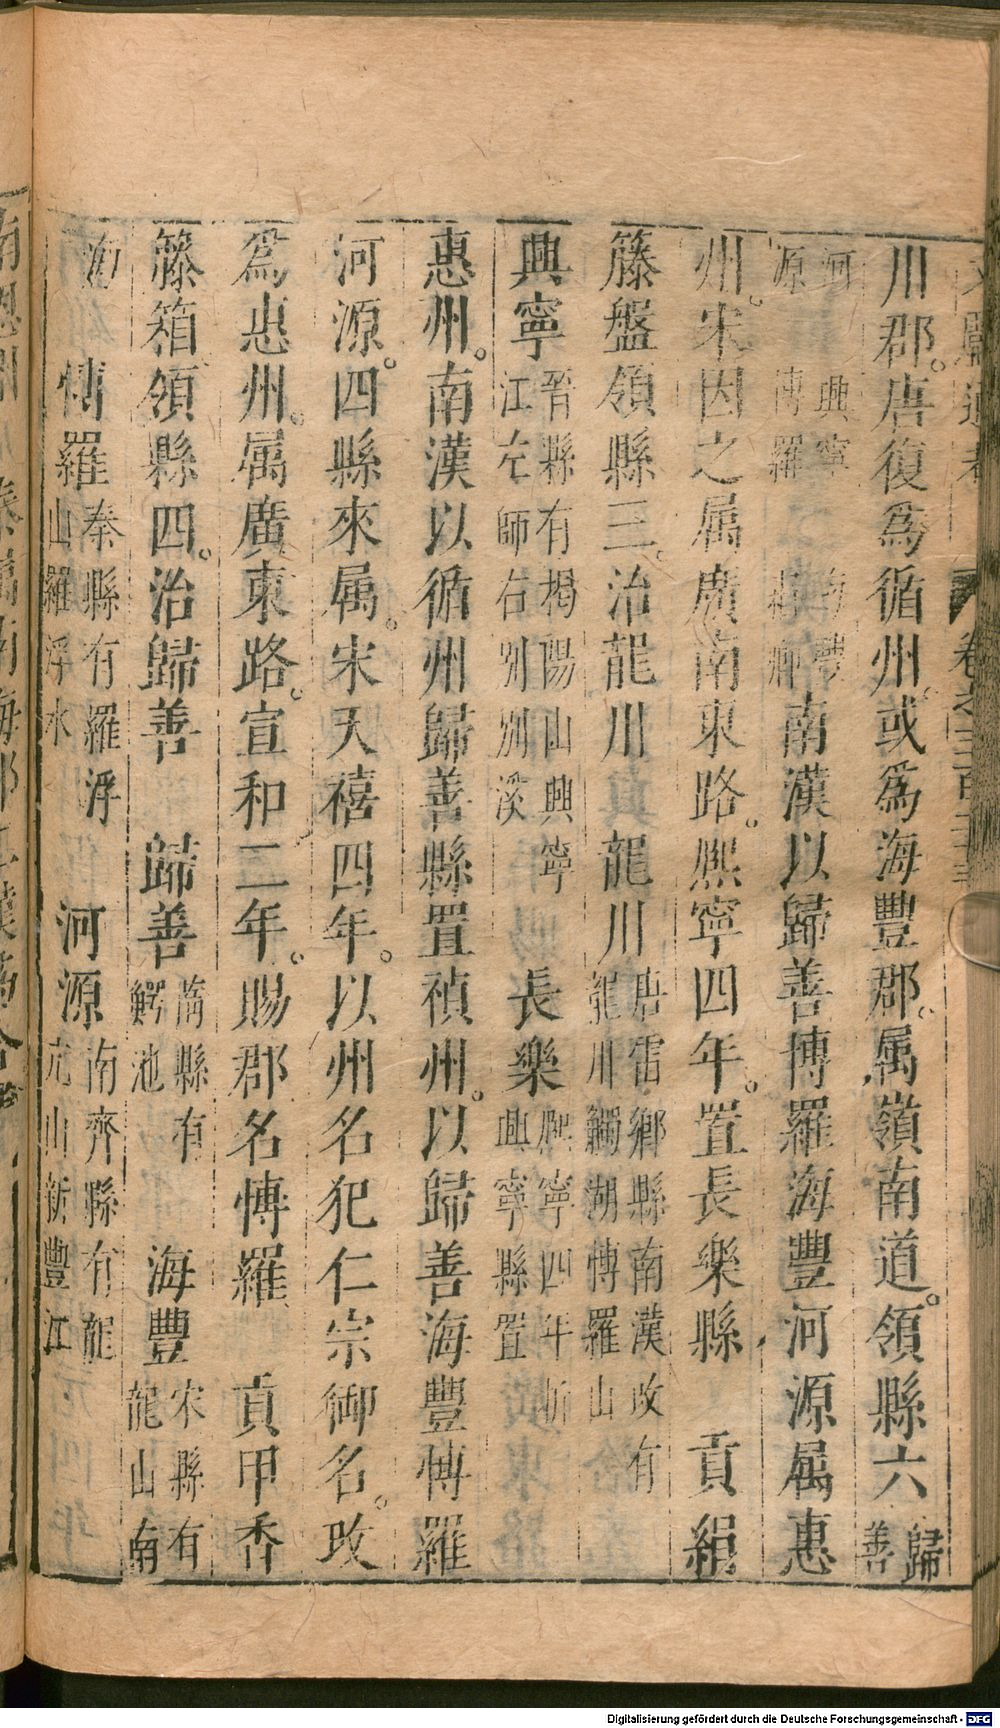 川郡。唐復爲循州。或爲海豐郡。属嶺南道。領縣六歸善
河源 興寧 博羅 海豐 雷鄉南漢以歸善博羅海豐河源属惠
州。宋因之属廣南東路。熙寧四年。置長樂縣 貢絹
籐盤領縣三。治龍川 龍川唐雷鄉縣南漢改有龍川鰐湖愽羅山
興寧晉縣有楊陽山興寧江左師右別別溪 長樂熙寧四年析興寧縣置
惠州。南漢以循州歸善縣置禎州。以歸善海豐愽羅
河源。四縣來属。宋天禧四年。以州名犯仁宗御名。改
爲惠州。属廣東路。宣和二年。賜郡名愽羅 貢甲香
籐箱領縣四。治歸善 歸善 縣有鰐池 海豐宋縣有龍山南
海 愽羅秦縣有羅浮山羅浮水 河源南齊縣有龍亢山新豐江
Digitalisierung gefördert durch die Deutsche Forschungsgemeinschaft - DFG